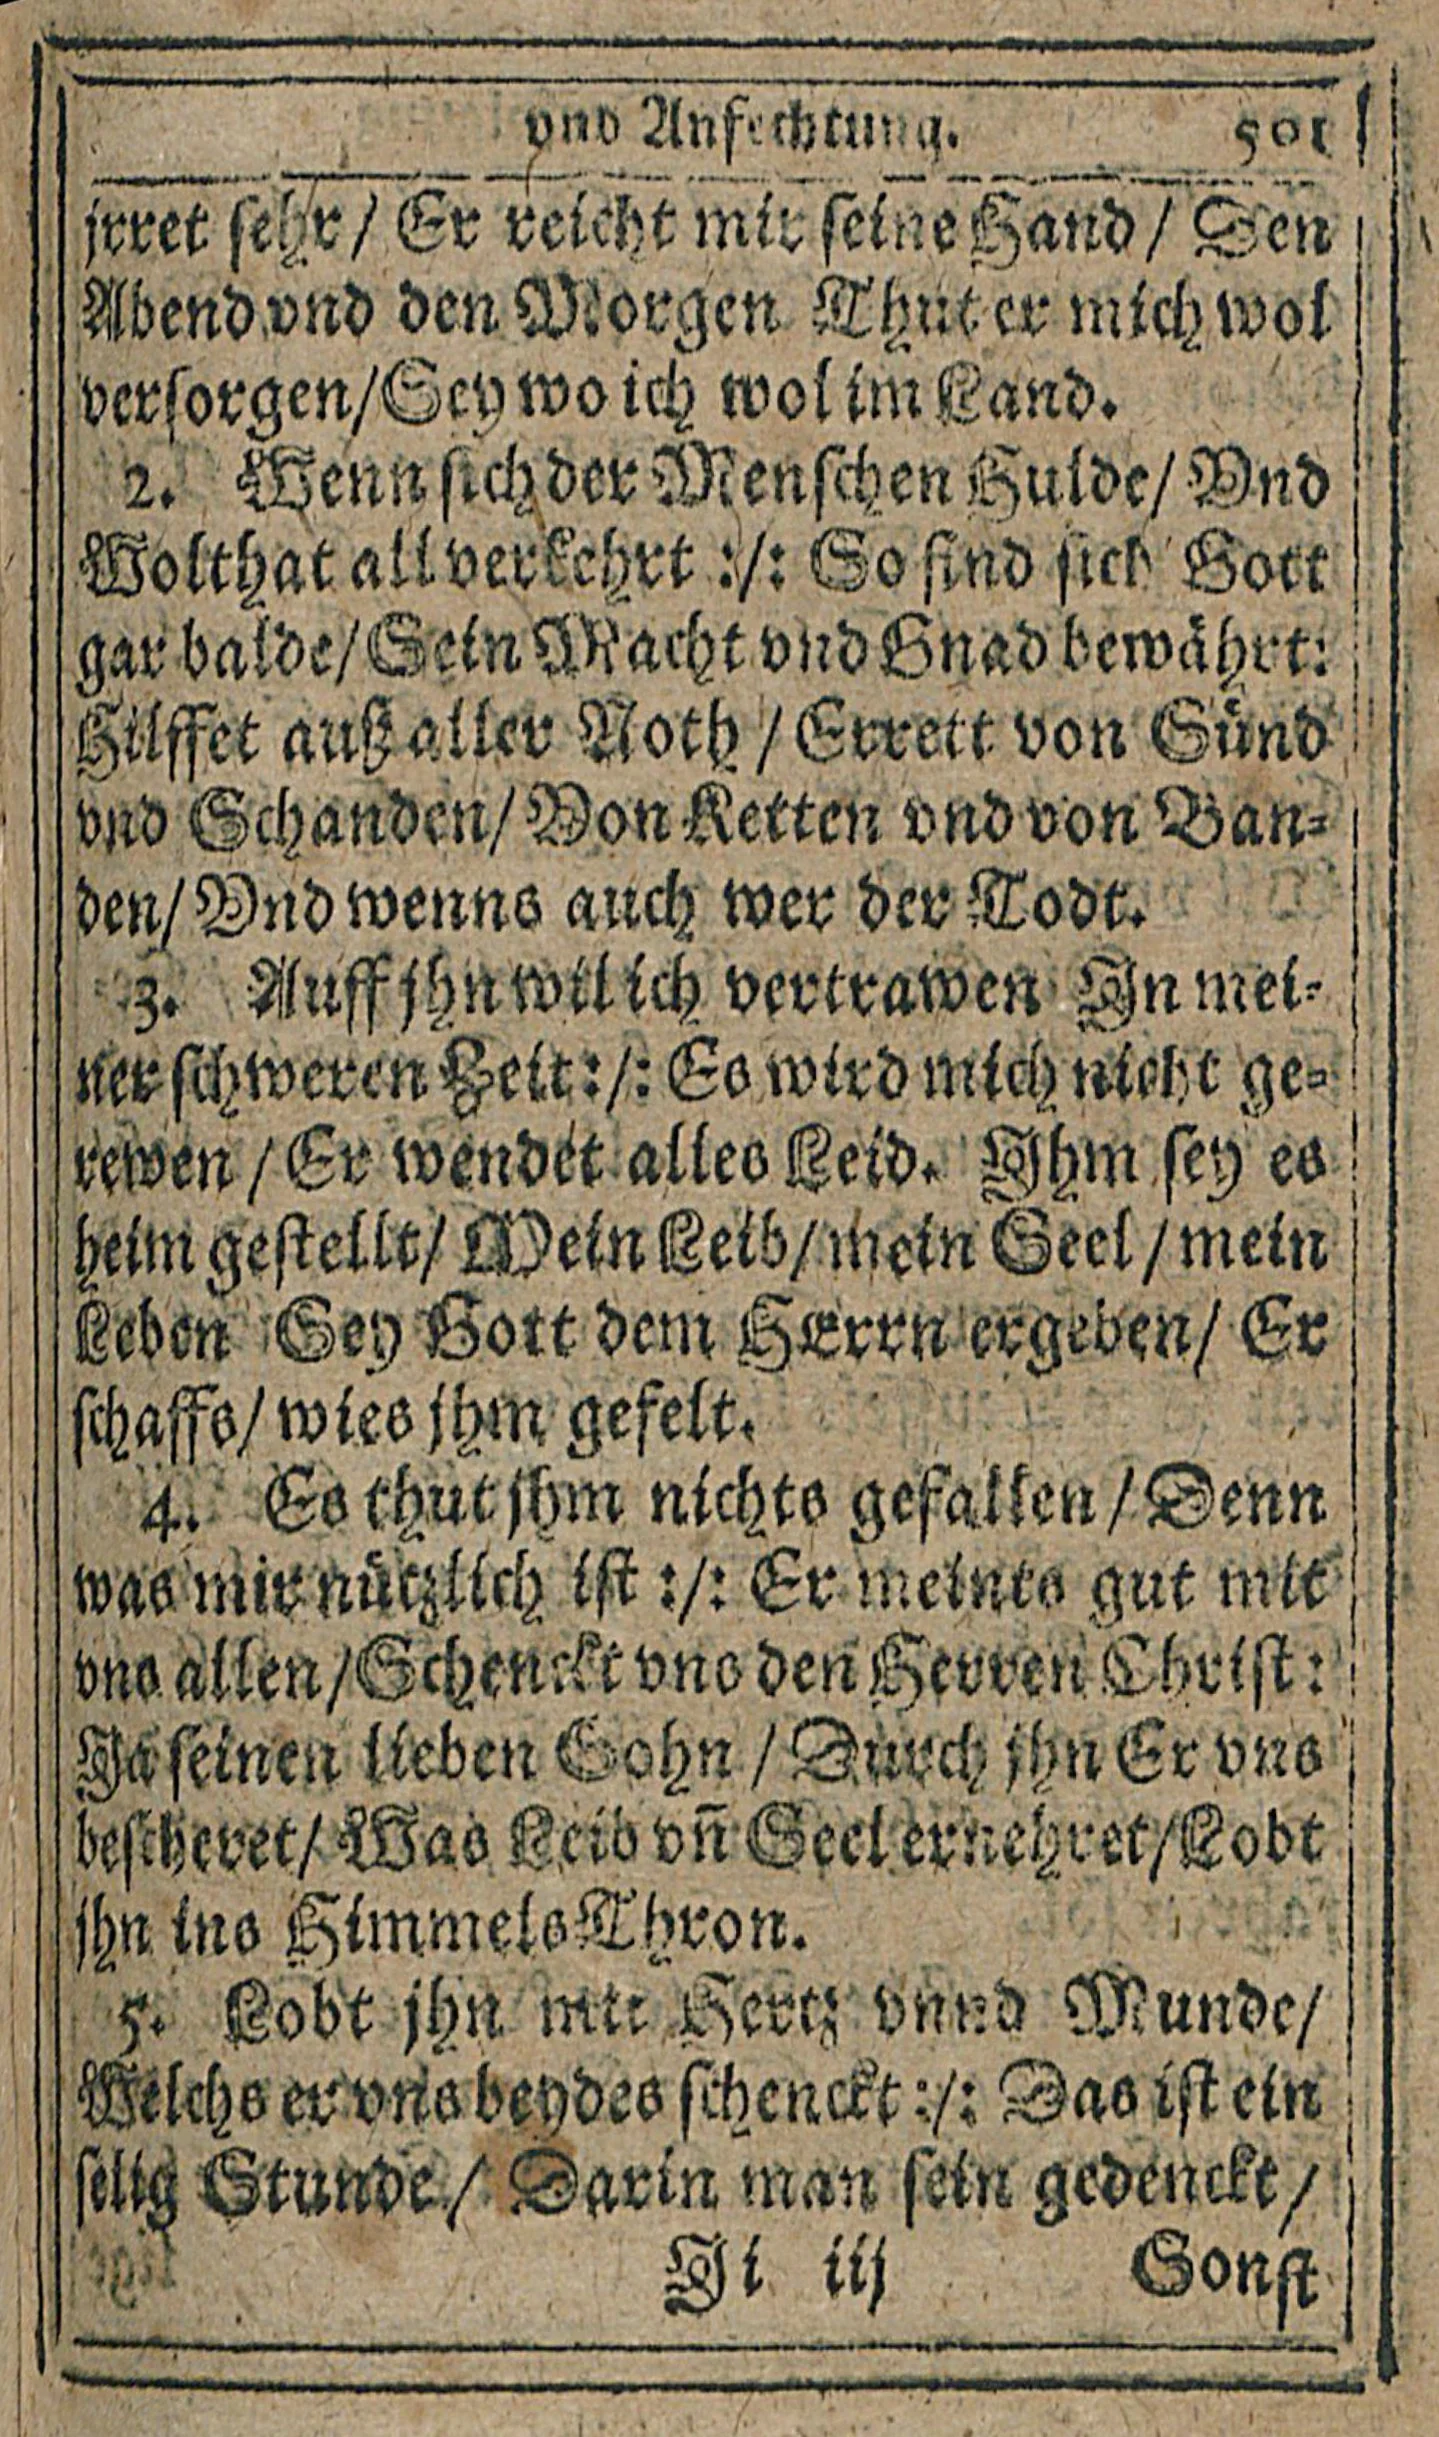 vnd Anfechtung. 501
jrret sehr / Er reicht mir seine Hand / Den
Abend vnd den Morgen Thut er mich wol
versorgen / Sey wo ich wol im Land.
2. Wenn sich der Menschen Hulde / Vnd
Wolthat all verkehrt :/: So find sich Gott
gar balde / Sein Macht vnd Gnad bewährt:
Hilffet auß aller Noth / Errett von Sünd
vnd Schanden / Von Ketten vnd von Ban-
den / Vnd wenns auch wer der Todt.
3. Auff jhn wil ich vertrawen In mei-
ner schweren Zeit :/: Es wird mich nicht ge-
rewen / Er wendet alles Leid. Ihm sey es
heim gestellt / Mein Leib / mein Seel / mein
Leben Sey Gott dem HErrn ergeben / Er
schaffs / wies jhm gefelt.
4. Es thut jhm nichts gefallen / Denn
was mir nützlich ist :/: Er meints gut mit
vns allen / Schenckt vns den Herren Christ:
Ja seinen lieben Sohn / Durch jhn Er vns
bescheret / Was Leib vn̄ Seel ernehret / Lobt
jhn ins Himmels Thron.
5. Lobt jhn mit Hertz vnnd Munde /
Welchs er vns beydes schenckt :/: Das ist ein
selig Stunde / Darin man sein gedenckt /
Ji iij Sonst